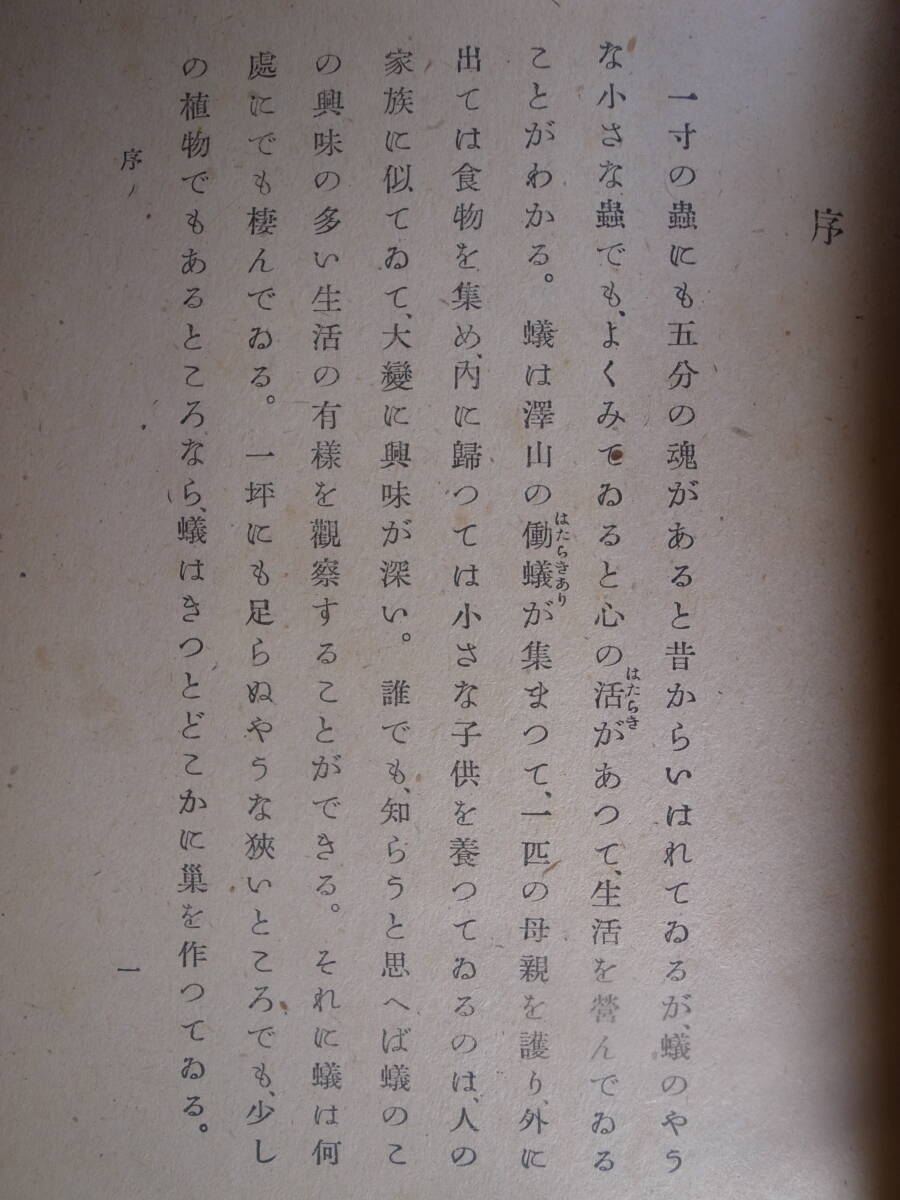 序
一寸の蟲にも五分の魂があると昔からいはれてゐるが、蟻のやう
な小さな蟲でも、よくみてゐると心の活があつて、生活を營んでゐる
はたらき
ことがわかる。蟻は澤山の働蟻が集まつて、一匹の母親を護り、外に
はたらきあり
出ては食物を集め、內に歸つては小さな子供を養つてゐるのは、人の
家族に似てゐて、大變に興味が深い。誰でも、知らうと思へば蟻のこ
の興味の多い生活の有樣を觀察することができる。それに蟻は何
處にでも棲んでゐる。一坪にも足らぬやうな狹いところでも、少し
の植物でもあるところなら、蟻はきつとどこかに巢を作つてゐる。
序
一